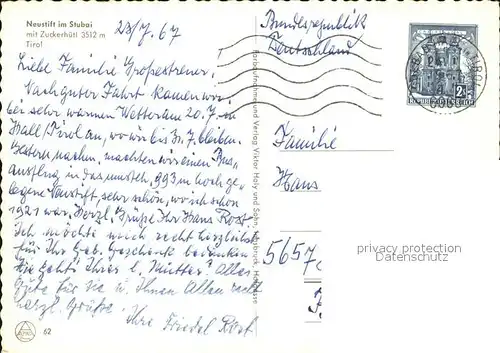 Neustift im Stubai
mit Zuckerhütl 3512 m
Tirol
23/7. 67
Liebe Familie
Nach guter Fahrt kamen wir
bei sehr warmem Wetter am 20.7. in
Hall/Tirol an, wo wir bis 3.7. bleiben.
Gestern nachm. machten wir einen Bus-
ausflug in das 993 m hoch ge-
legene Neustift, sehr schön, wo ich schon
1921 war. Herzl. Grüße Ihr Hans Rost.
Ich möchte mich recht herzlichst
für Ihr Geb. Geschenk bedanken.
Wie geht's Ihrer l. Mutter? Alles
Gute für sie u. Ihnen Allen recht
herzl. Grüße
Ihre Friedel Rost
62
Bundesrepublik
Deutschland
REPUBLIK ÖSTERREICH
Familie
Hans
5657
privacy protection
Datenschutz